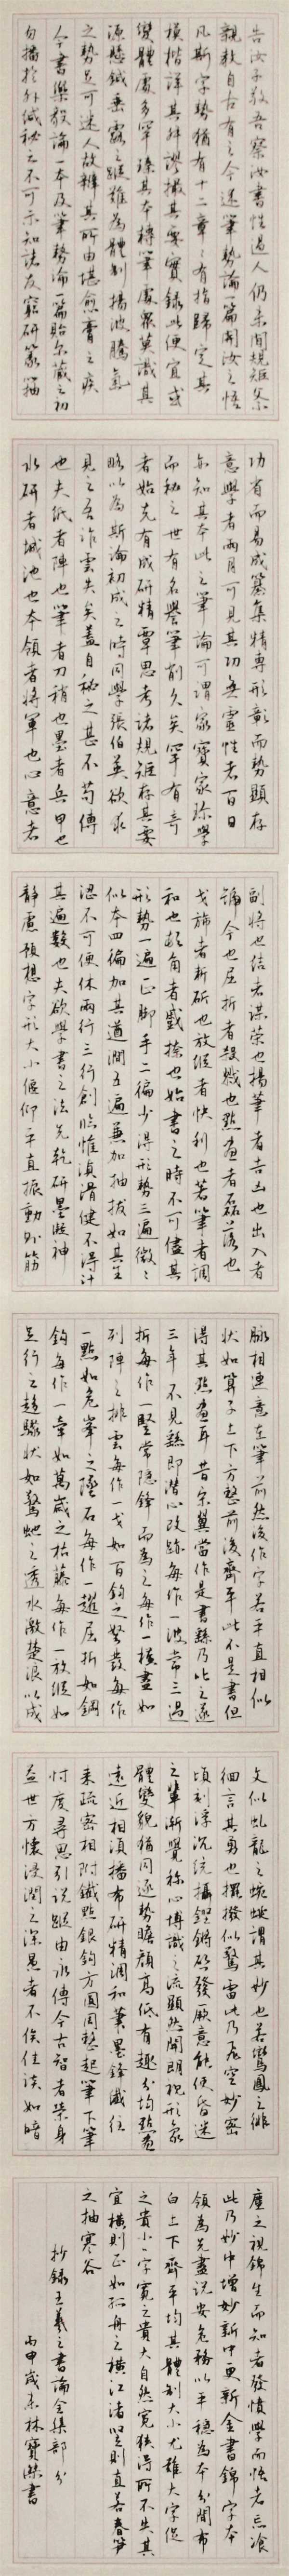 告汝子敬吾察汝書性過人仍未閑規矩父不
親教自古有之今述筆勢論一篇開汝之悟
凡斯字勢猶有十二章章有指歸定其
模楷詳其舛謬撮其要實錄此便宜或
變體處多罕臻其本轉筆處眾莫識其
源懸針垂露之蹤難為體制揚波騰氣
之勢足可迷人故辨其所由堪愈膏之疾
今書樂毅論一本及筆勢論一篇貽爾藏之初
勿播於外緘秘之不可示知諸友窮研篆籀
功省而易成纂集精專形彰而勢顯存
意學者兩月可見其功無靈性者百日
亦知其本此之筆論可謂家寶家珍學
而秘之世有名譽筆削久矣罕有奇
者始克有成研精覃思考諸規矩存其要
略以為斯論初成之時同學張伯英欲求
見之吾詐雲失矣蓋自秘之甚不苟傳
也夫紙者陣也筆者刀矟也墨者兵甲也
水研者城池也本領者將軍也心意者
副將也結者謀策也揚筆者吉凶也出入者
號令也屈折者殺戮也點畫者磊落也
戈旆者斬斫也放縱者快利也著筆者調
和也頓角者蹙捺也始書之時不可儘其
形勢一遍正腳手二遍少得形勢三遍微微
似本四遍加其遒潤五遍兼加抽拔如其生
澀不可便休兩行三行創臨惟須滑健不得計
其遍數也夫欲學書之法先乾研墨凝神
靜慮預想字形大小偃仰平直振動則筋
脈相連意在筆前然後作字若平直相似
狀如算子上下方整前後齊平此不是書但
得其點畫耳昔宋翼嘗作是書繇乃叱之遂
三年不見繇即潛心改跡每作一波常三過
折每作一豎常隱鋒而為之每作一橫畫如
列陣之排雲每作一戈如百鈞之弩發每作
一點如危峯之墜石每作一趯屈折如鋼
鉤每作一牽如萬歲之枯藤每作一放縱如
足行之趨驟狀如驚蛇之透水激楚浪以成
文似虬龍之蜿蜒謂其妙也若鸞鳳之徘
徊言其勇也擺撥似驚雷此乃飛空妙密
頃刻浮沉統攝鏗鏘啟發厥意能使昏迷
之輩漸覺稱心博識之流顯然開朗視形象
體變貌猶同逐勢瞻顏高低有趣分均點畫
遠近相須播布研精調和筆墨鋒纖往
來疏密相附鐵點銀鉤方圓周整起筆下筆
忖度尋思引說蹤由永傳今古智者榮身
益世方懷浸潤之深愚者不俟佳談如暗
塵之視錦生而知者發憤學而悟者忘飧
此乃妙中增妙新中更新金書錦字本
領為先盡說安危務以平穩為本分間布
白上下齊平均其體制大小尤難大字促
之貴小小字寬之貴大自然寬狹得所不失其
宜橫則正如孤舟之橫江渚豎則直若春笋
之抽寒谷
抄錄王羲之書論全集部分
丙申歲末林寶傑書